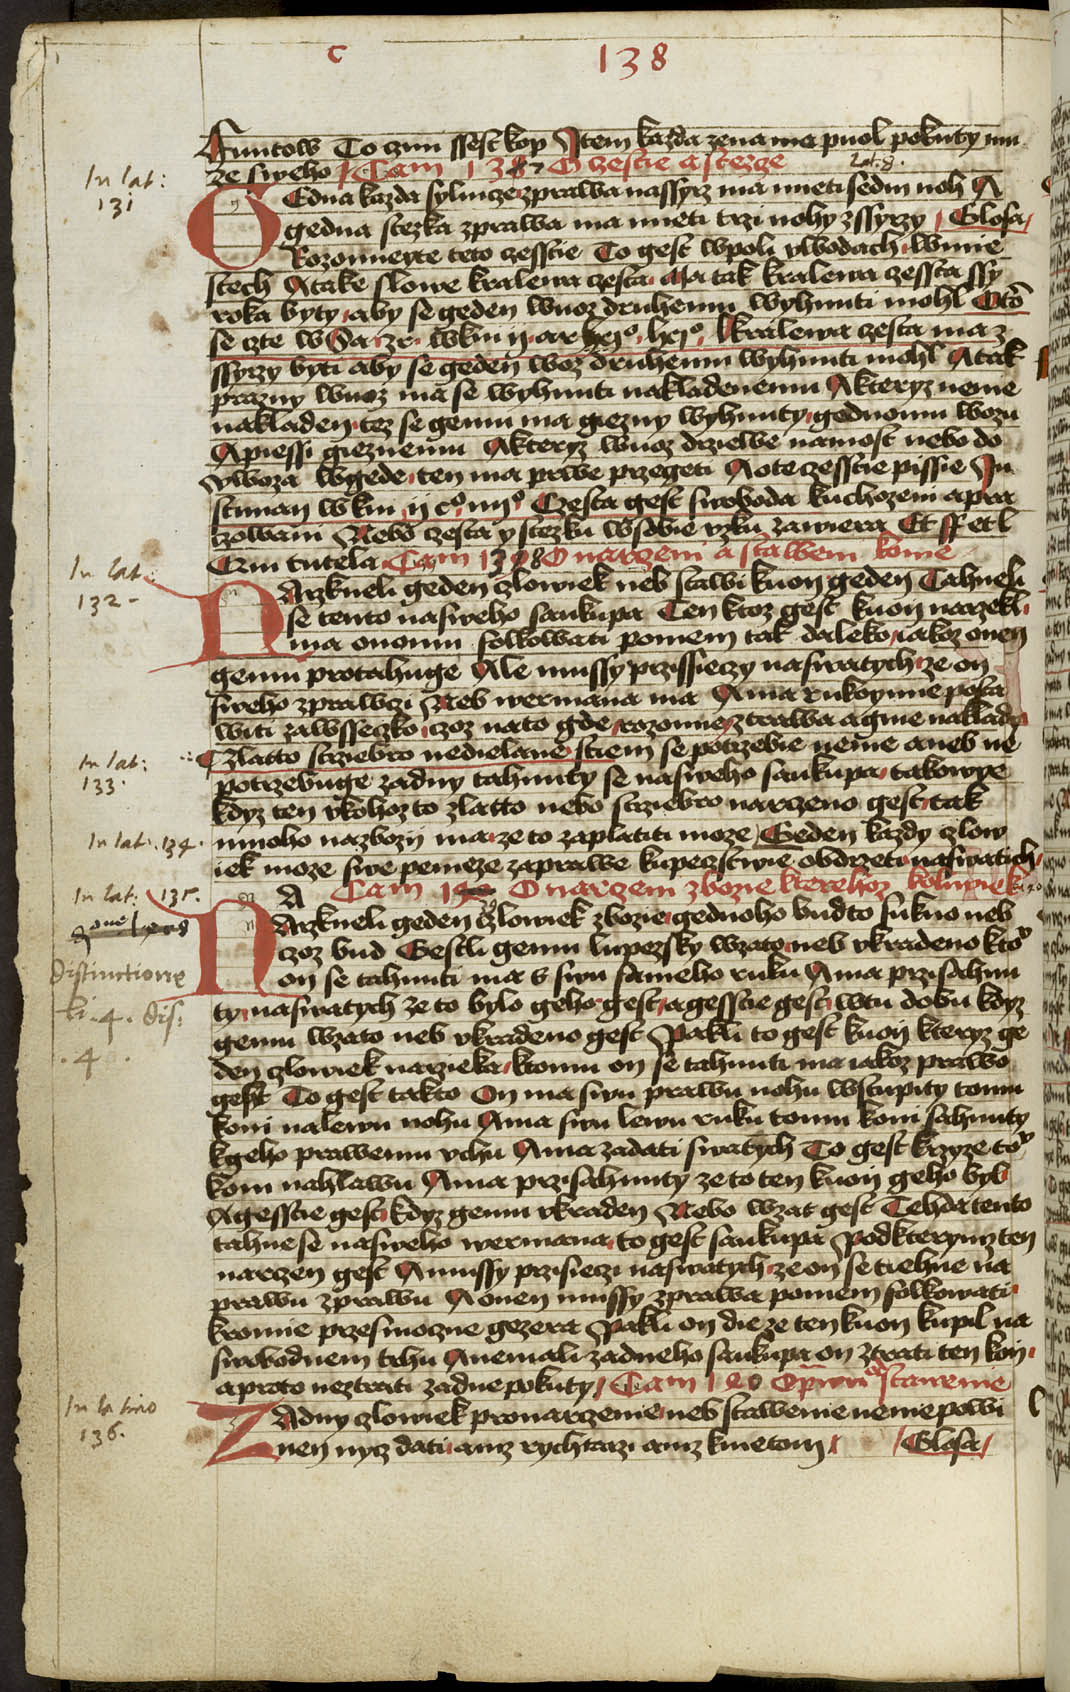 c 138
Funtow To czini ssest kop Item kazda zena ma puol pokuty mu
ze sweho Cam 138 7 O czestie a stezze Lat. 8.
In lat:
131
GEdna kazda sylnicze zprawa nassyrz ma mieti sedm noh A
gedna stezka zprawa ma mieti trzi nohy zssyrzy Glosa
Rozomieyte teto czesstie To gest wpoli vwodach wmie
stech A take slowe kralewa czesta Ma tak kralewa czessta ssy
roka byty aby se geden wuoz druhemu wyhnuti mohl
se czte w kralewa czesta ma z
ssyrzy byti aby se geden woz druhemu wyhnuti mohl A tak
prazny wuoz ma se wyhnuti nakladenemu A kteryz nenie
nakladen tez se gemu ma giezny wyhnuty gednomu wozu
A piessi gieznemu A kteryz wuoz drziewe namost nebo do
vwoza wygede ten ma prwe przegeti A o te czesstie pissie Ju
stinian w kni Czesta gest swoboda kuchozeni a pra
czowani Nebo czesta y stezku wsobie vzku zawiera Et ff et l
Qui tutela Cam 139 8 O narzeni a staweni konie
In lat
132
NArzkneli geden czlowiek neb stawi kuon geden Tahneli
se tento nasweho saukupa Ten ktoz gest kuon narzekl
ma onomu folkowati pomem tak daleko iakoz onen
gemu protahuge Ale mussy przissieczy naswatych ze on
sweho zprawczi Neb wermana ma A ma rukoymie posta
witi zawssczko czoz nato gde rozomiey ztrawa a gine naklady
In lat:
133.
Zlatto strziebro nedielane stiem se potrzebie nenie aneb ne
potrzebuge zadny tahnuty se nasweho saukupa takowye
kdyz ten vkohoz to zlatto nebo strziebro narczeno gest tak
In lat: 134.
mnoho nazbozij ma ze to zaplatiti moze Geden kazdy czlow
iek moze swe penieze zaprawe kupeczstwie obdrzeti naswatich
In lat: 135.
Cam 140 O narzeni zbozie kterehoz kolwiek
Distinctionu
li. 4. dis:
4.
NArzkneli geden czlowiek zbozie gednoho budto sukno neb
czoz bud Gestli gemu lupezsky wzato neb vkradeno kto
on se tahnuti ma s swu sameho ruku A ma przisahnu
ty naswatych ze to bylo geho gest a gesstie gest wtu dobu kdyz
gemu wzato neb vkradeno gest Pakli to gest kuon kteryz ge
den czlowiek narzieka ktomu on se tahnuti ma iakoz prawo
gest To gest takto On ma swu prawu nohu wstupity tomu
koni nalewu nohu A ma swu lewu ruku tomu koni sahnuty
kgeho prawemu vchu A ma zadati swatych To gest krzyze to
koni nahlawu A ma przisahnuty ze to ten kuon geho byl
A gesstie gest kdyz gemu vkraden Nebo wzat gest Tehda tento
tahne se nasweho wermana to gest saukupa Podkterymz ten
narczen gest A mussy przisieczi naswatych ze on se tiehne na
prawu zprawu A onen mussy zprawa pomem folkowati
kromie przesmoczne gezera Pakli on die ze ten kuon kupil na
swobodnem trhu A nemali zadneho saukupa on ztrati ten kon
a proto neztrati zadne pokuty Cam 1 o stawenie
In latino
136.
ZAdny czlowiek pronarczenie neb stawenie nenie powi
nen nycz dati anz rychtarzi anz kmetom Glosa